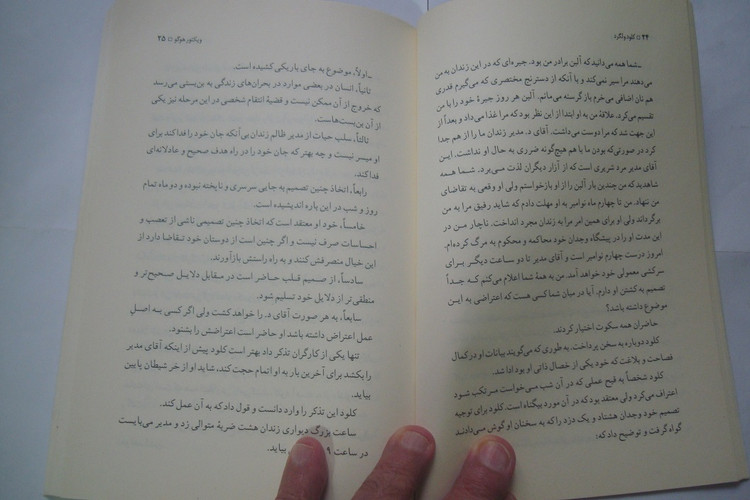 ۲۴ □ کلود ولگرد
ـ شما همه می‌دانید که آلبن برادر من بود. جیره‌ای که در این زندان به من
می‌دهند مرا سیر نمی‌کند و با آنکه از دسترنج مختصری که می‌گیرم قدری
هم نان اضافی می‌خرم باز گرسنه می‌مانم. آلبن هر روز جیرهٔ خود را با من
تقسیم می‌کرد. علاقهٔ من به او ابتدا از این نظر بود که مرا غذا می‌داد و بعداً از
این جهت شد که مرا دوست می‌داشت. آقای د. مدیر زندان ما را از هم جدا
کرد در صورتی‌که بودن ما با هم هیچ‌گونه ضرری به حال او نداشت. این
آقای مدیر مرد شریری است که از آزار دیگران لذت می‌برد. شما همه
شاهدید که من چندین بار آلبن را از او بازخواستم ولی او وقعی به تقاضای
من ننهاد. من تا چهارم ماه نوامبر به او مهلت دادم که شاید رفیق مرا به من
برگرداند ولی او برای همین امر مرا به زندان مجرد انداخت. ناچار من در
این مدت او را در پیشگاه وجدان خود محاکمه و محکوم به مرگ کرده‌ام.
امروز درست چهارم نوامبر است و آقای مدیر تا دو ساعت دیگر برای
سرکشی معمولی خود خواهد آمد. من به همهٔ شما اعلام می‌کنم که جداً
تصمیم به کشتن او دارم. آیا در میان شما کسی هست که اعتراضی به این
موضوع داشته باشد؟
حاضران همه سکوت اختیار کردند.
کلود دوباره به سخن پرداخت. به طوری که می‌گویند بیانات او در کمال
فصاحت و بلاغت که خود یکی از خصال ذاتی او بود ادا شد.
کلود شخصاً به قبح عملی که در آن شب می‌خواست مرتکب شود
اعتراف می‌کرد ولی معتقد بود که در آن مورد بیگناه است. کلود برای توجیه
تصمیم خود وجدان هشتاد و یک دزد را که به سخنان او گوش می‌دادند
گواه گرفت و توضیح داد که:
ویکتور هوگو □ ۲۵
ـ اولاً، موضوع به جای باریکی کشیده است.
ثانیاً، انسان در بعضی موارد در بحران‌های زندگی به بن‌بستی می‌رسد
که خروج از آن ممکن نیست و قضیهٔ انتقام شخصی در این مرحله نیز یکی
از آن بن‌بست‌هاست.
ثالثاً، سلب حیات از مدیر ظالم زندان بی‌آنکه جان خود را فدا کند برای
او میسر نیست و چه بهتر که جان خود را در راه هدف صحیح و عادلانه‌ای
فدا کند.
رابعاً، اتخاذ چنین تصمیم به جایی سرسری و ناپخته نبوده و دو ماه تمام
روز و شب در این باره اندیشیده است.
خامساً، خود او معتقد است که اتخاذ چنین تصمیمی ناشی از تعصب و
احساسات صرف نیست و اگر چنین است از دوستان خود تقاضا دارد از
این خیال منصرفش کنند و به راه راستش بازآورند.
سادساً، از صمیم قلب حاضر است در مقابل دلایل صحیح‌تر و
منطقی‌تر از دلایل خود تسلیم شود.
سابعاً، به هر صورت آقای د. را خواهد کشت ولی اگر کسی به اصل
عمل اعتراض داشته باشد او حاضر است اعتراضش را بشنود.
تنها یکی از کارگران تذکر داد بهتر است کلود پیش از اینکه آقای مدیر
را بکشد برای آخرین بار به او اتمام حجت کند، شاید او از خر شیطان پایین
بیاید.
کلود این تذکر را وارد دانست و قول داد که به آن عمل کند.
ساعت بزرگ دیواری زندان هشت ضربهٔ متوالی زد و مدیر می‌بایست
در ساعت ۹ بیاید.